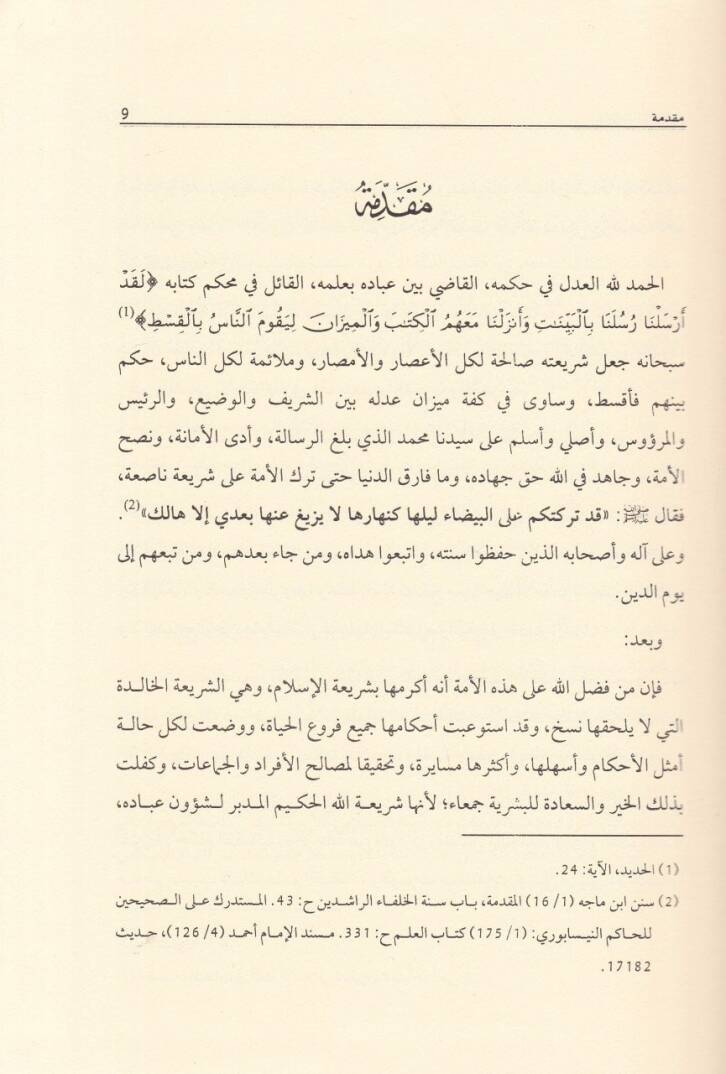 مقدمة 9
مُقَدِّمَةُ
الحمد لله العدل في حكمه، القاضي بين عباده بعلمه، القائل في محكم كتابه ﴿لَقَدْ
أَرْسَلْنَا رُسُلَنَا بِالْبَيِّنَٰتِ وَأَنزَلْنَا مَعَهُمُ الْكِتَٰبَ وَالْمِيزَانَ لِيَقُومَ النَّاسُ بِالْقِسْطِ﴾(1)
سبحانه جعل شريعته صالحة لكل الأعصار والأمصار، وملائمة لكل الناس، حكم
بينهم فأقسط، وساوى في كفة ميزان عدله بين الشريف والوضيع، والرئيس
والمرؤوس، وأصلي وأسلم على سيدنا محمد الذي بلغ الرسالة، وأدى الأمانة، ونصح
الأمة، وجاهد في الله حق جهاده، وما فارق الدنيا حتى ترك الأمة على شريعة ناصعة،
فقال ﷺ: «قد تركتكم على البيضاء ليلها كنهارها لا يزيغ عنها بعدي إلا هالك»(2).
وعلى آله وأصحابه الذين حفظوا سنته، واتبعوا هداه، ومن جاء بعدهم، ومن تبعهم إلى
يوم الدين.
وبعد:
فإن من فضل الله على هذه الأمة أنه أكرمها بشريعة الإسلام، وهي الشريعة الخالدة
التي لا يلحقها نسخ، وقد استوعبت أحكامها جميع فروع الحياة، ووضعت لكل حالة
أمثل الأحكام وأسهلها، وأكثرها مسايرة، وتحقيقا لمصالح الأفراد والجماعات، وكفلت
بذلك الخير والسعادة للبشرية جمعاء؛ لأنها شريعة الله الحكيم المدبر لشؤون عباده،
(1) الحديد، الآية: 24.
(2) سنن ابن ماجه (1/ 16) المقدمة، باب سنة الخلفاء الراشدين ح: 43. المستدرك على الصحيحين
للحاكم النيسابوري: (1/ 175) كتاب العلم ح: 331. مسند الإمام أحمد (4/ 126)، حديث
17182.